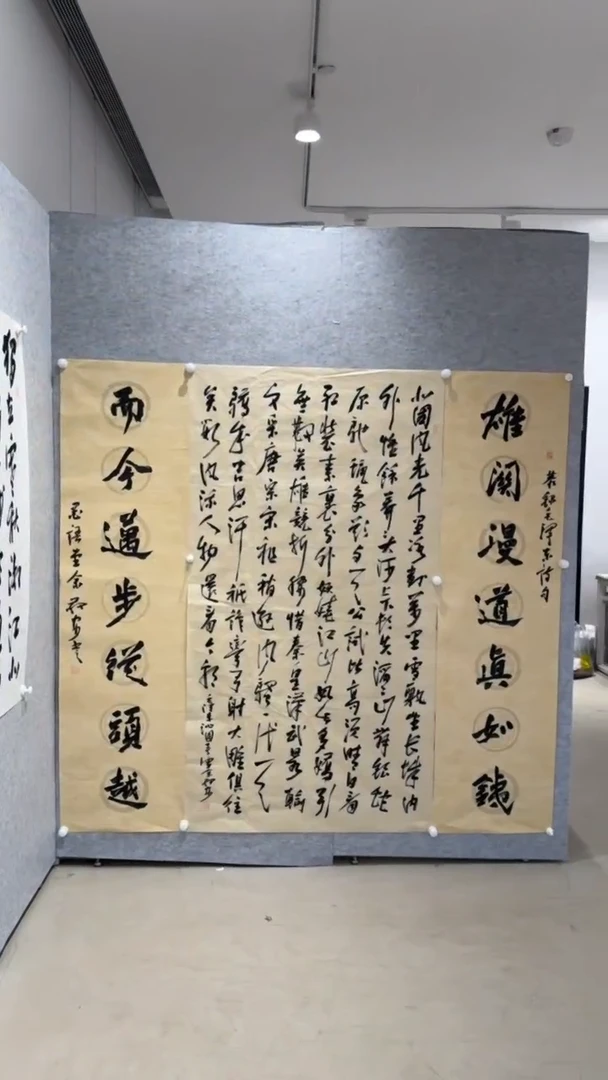 雄関漫道真如鐵
恭録毛澤東詩句
北國風光千里冰封萬里雪飄望長城内
外惟餘莽莽大河上下頓失滔滔山舞銀蛇
原馳蠟象欲與天公試比高須晴日看
紅裝素裹分外妖嬈江山如此多嬌引
無數英雄競折腰惜秦皇漢武略輸
文采唐宗宋祖稍遜風騷一代天
驕成吉思汗祇識彎弓射大雕俱往
矣數風流人物還看今朝
而今邁步從頭越
獨立寒秋湘江北